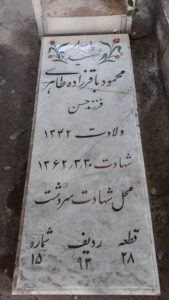 شهید
محمود باقرزاده طاهری
فرزند حسن
ولادت ۱۳۴۲
شهادت ۱۳۶۲/۳/۳۰
محل شهادت سردشت
قطعه ردیف شماره
۲۸ ۹۳ ۱۵